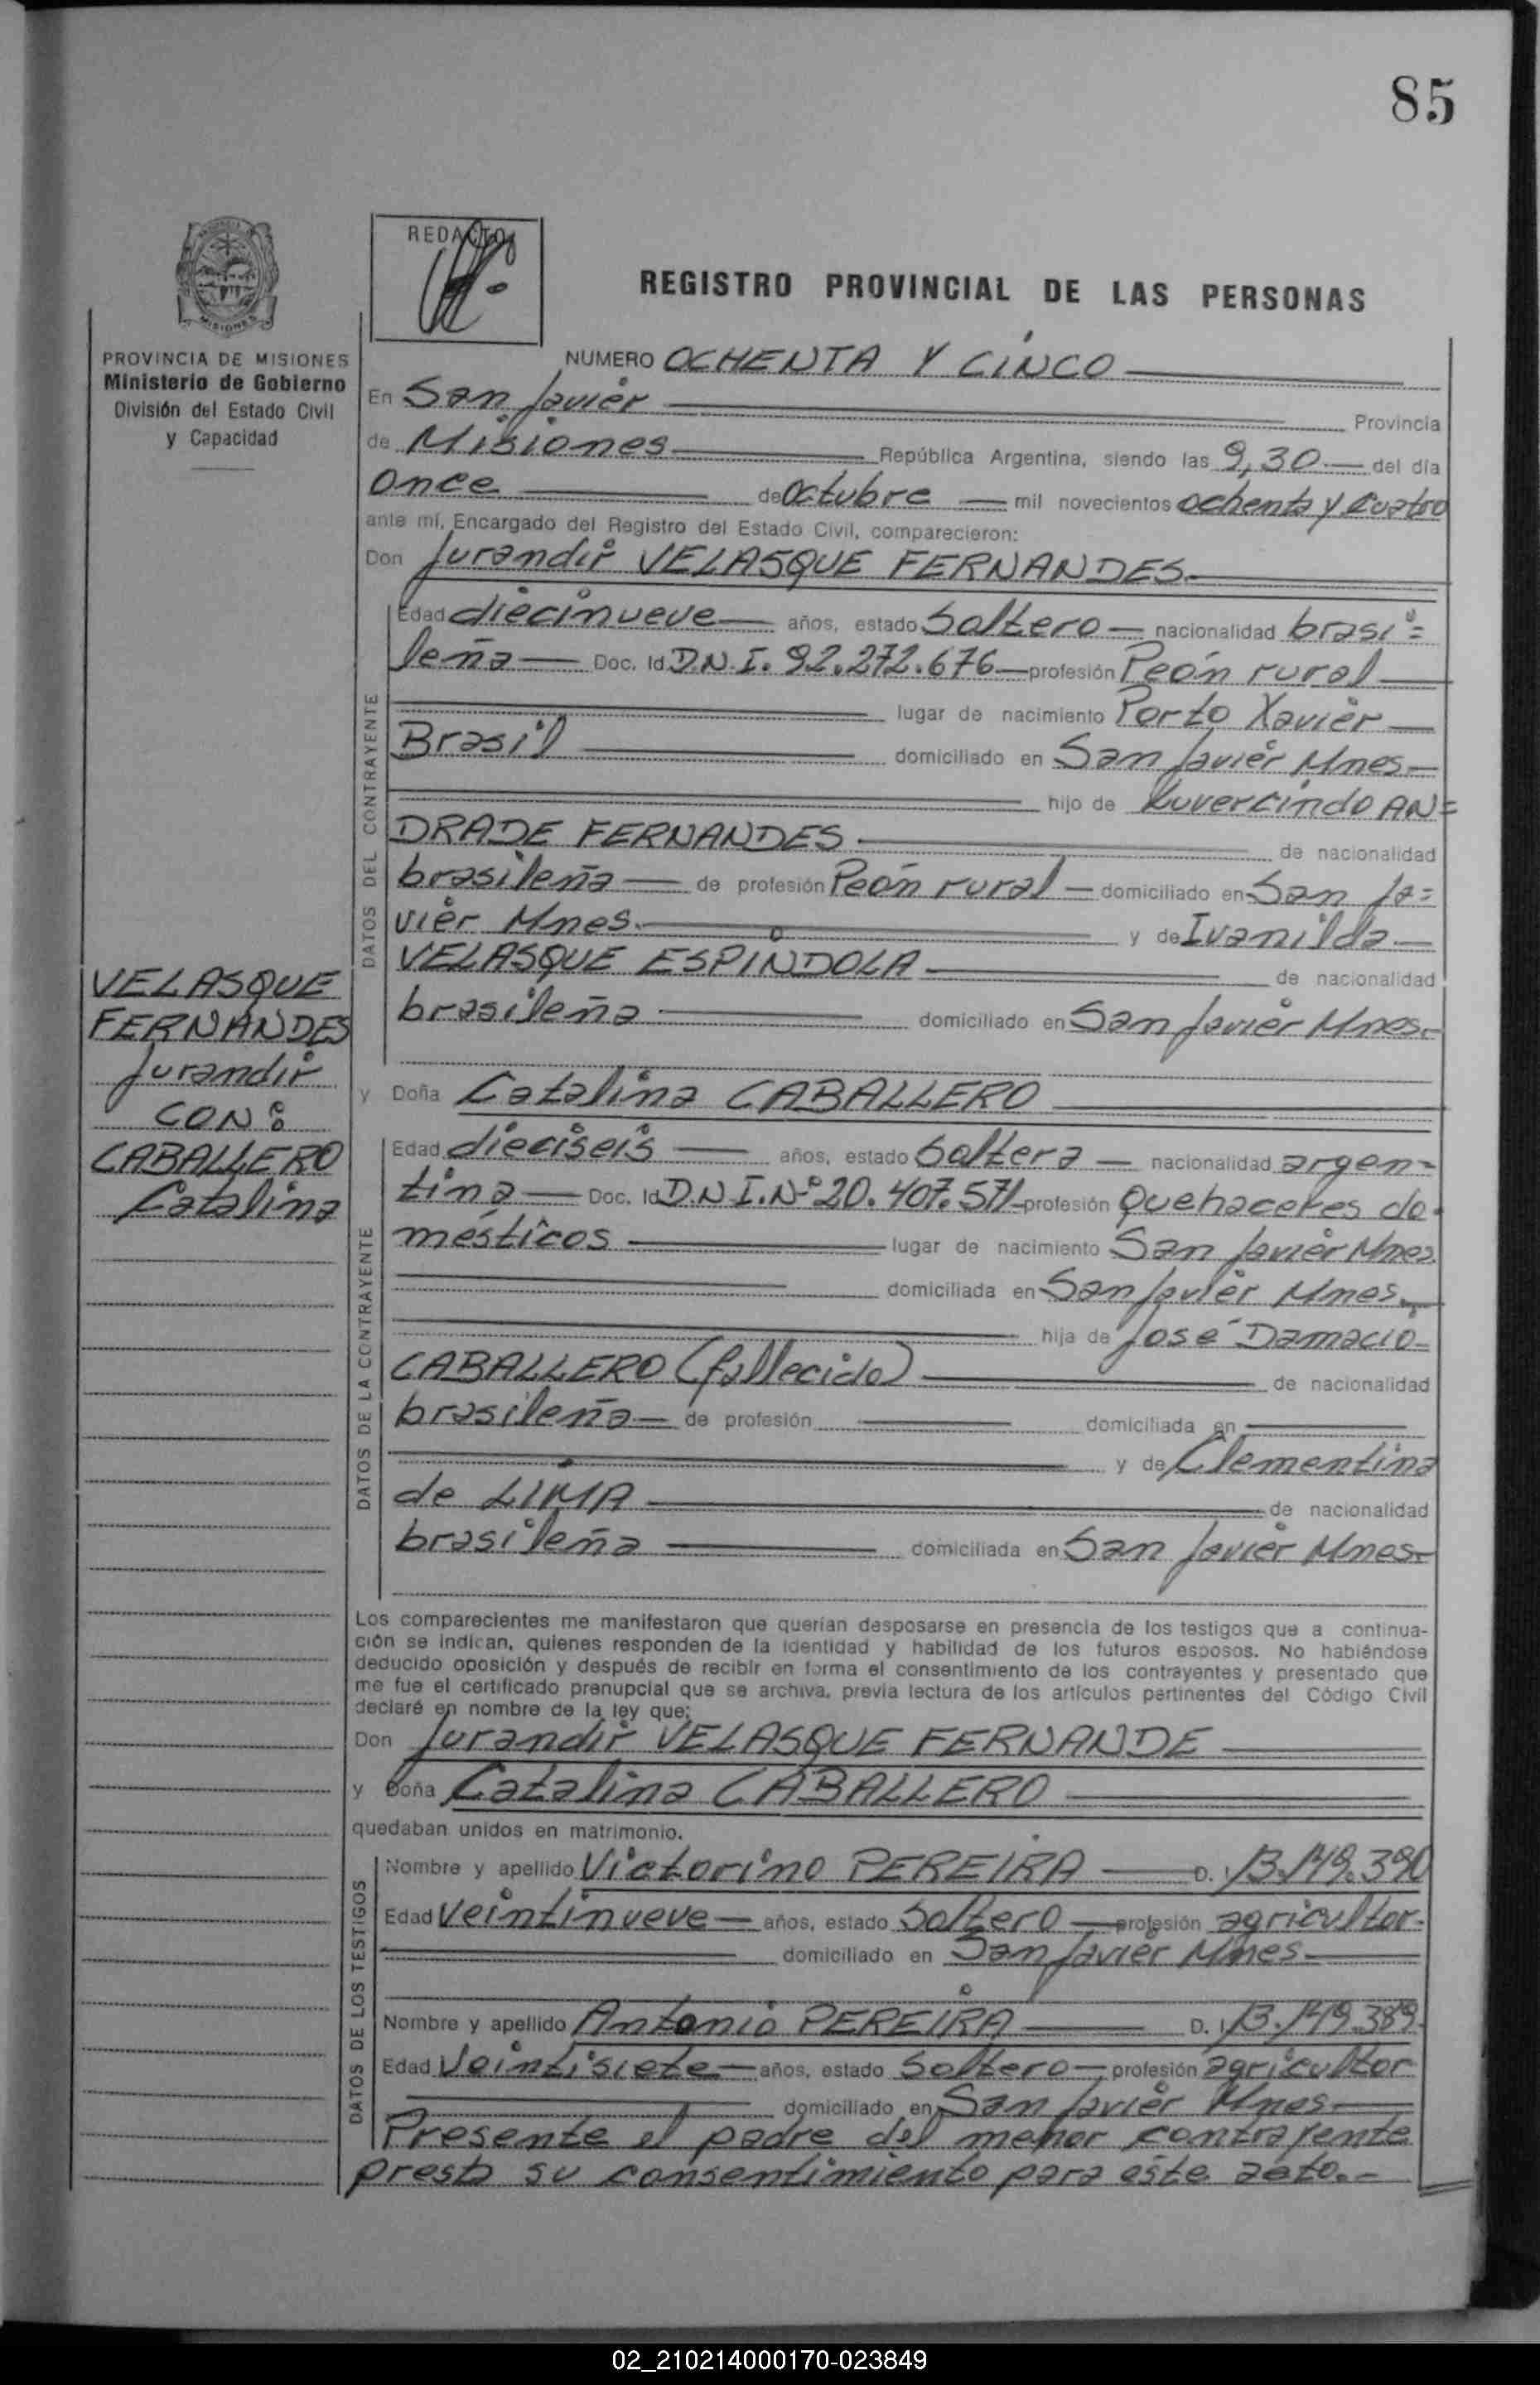 85
REDACTO
REGISTRO PROVINCIAL DE LAS PERSONAS
MISIONES
PROVINCIA DE MISIONES
Ministerio de Gobierno
División del Estado Civil
y Capacidad
NUMERO OCHENTA Y CINCO
En San Javier Provincia
de Misiones República Argentina, siendo las 9,30 del día
Once de Octubre mil novecientos ochenta y cuatro
ante mí, Encargado del Registro del Estado Civil, comparecieron:
Don Jurandir VELASQUE FERNANDES.
DATOS DEL CONTRAYENTE
Edad diecinueve años, estado Soltero nacionalidad brasi=
leña Doc. Id. D.N.I. 92.272.676 profesión Peón rural
lugar de nacimiento Porto Xavier
Brasil domiciliado en San Javier Mnes
hijo de Luvercindo AN=
DRADE FERNANDES de nacionalidad
brasileña de profesión Peón rural domiciliado en San Ja=
vier Mnes. y de Ivanilda
VELASQUE ESPINDOLA de nacionalidad
brasileña domiciliado en San Javier Mnes.
VELASQUE
FERNANDES
Jurandir
CON:
CABALLERO
Catalina
y Doña Catalina CABALLERO
DATOS DE LA CONTRAYENTE
Edad dieciseis años, estado Soltera nacionalidad argen-
tina Doc. Id. D.N.I. Nº 20.407.571 profesión Quehaceres do-
mésticos lugar de nacimiento San Javier Mnes
domiciliada en San Javier Mnes.
hija de José Damacio
CABALLERO (fallecido) de nacionalidad
brasileña de profesión domiciliada en
y de Clementina
de LIMA de nacionalidad
brasileña domiciliada en San Javier Mnes.
Los comparecientes me manifestaron que querían desposarse en presencia de los testigos que a continua-
ción se indican, quienes responden de la identidad y habilidad de los futuros esposos. No habiéndose
deducido oposición y después de recibir en forma el consentimiento de los contrayentes y presentado que
me fue el certificado prenupcial que se archiva, previa lectura de los artículos pertinentes del Código Civil
declaré en nombre de la ley que:
Don Jurandir VELASQUE FERNANDE
y Doña Catalina CABALLERO
quedaban unidos en matrimonio.
DATOS DE LOS TESTIGOS
Nombre y apellido Victorino PEREIRA D. I. 13.149.390
Edad veintinueve años, estado Soltero profesión agricultor.
domiciliado en San Javier Mnes.
Nombre y apellido Antonio PEREIRA D. I. 13.149.389.
Edad Veintisiete años, estado Soltero profesión agricultor
domiciliado en San Javier Mnes.
Presente el padre del menor contrayente
presta su consentimiento para este acto.-
02_210214000170-023849